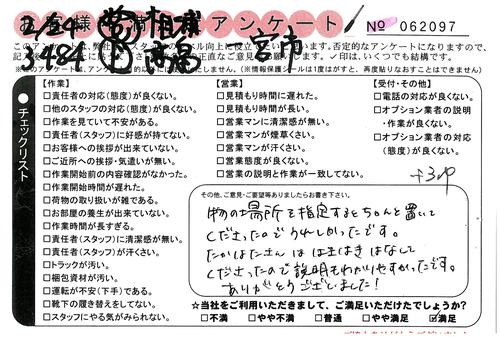 アンケート
№ 062097
このアンケートは、
✓印は、いくつでも結構です。
3484
【作業】
□責任者の対応(態度)が良くない。
□他のスタッフの対応(態度)が良くない。
□作業を見ていて不安がある。
□責任者(スタッフ)に好感が持てない。
□お客様への挨拶が出来ていない。
□ご近所への挨拶・気遣いが無い。
□作業開始前の内容確認がなかった。
□作業開始時間が遅れた。
□荷物の取り扱いが雑である。
□お部屋の養生が出来ていない。
□作業時間が長すぎる。
□責任者(スタッフ)に清潔感が無い。
□責任者(スタッフ)が汗くさい。
□トラックが汚い。
□梱包資材が汚い。
□運転が不安(下手)である。
□靴下の履き替えをしてない。
□スタッフにやる気がみられない。
【営業】
□見積もり時間に遅れた。
□見積もり時間が長い。
□営業マンに清潔感が無い。
□営業マンが煙草くさい。
□営業マンが汗くさい。
□営業態度が良くない。
□営業の説明と作業が一致してない。
【受付・その他】
□電話の対応が良くない。
□オプション業者の説明
・作業が良くない。
□オプション業者の対応
(態度)が良くない。
●チェックリスト
その他、ご意見・ご要望等ありましたらお書き下さい。
物の場所を指定するとちゃんと置いて
くださったのでうれしかったです。
たかはたさんははきはきはなして
くださったので説明もわかりやすかったです。
ありがとうございました!
☆当社をご利用いただきまして、ご満足いただけたでしょうか?
□不満 □やや不満 □普通 □やや満足 ☑満足